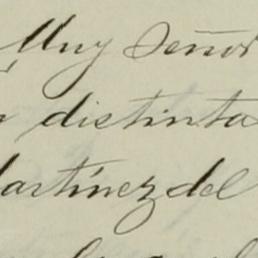 Muy Señor
distinta
Martínez del